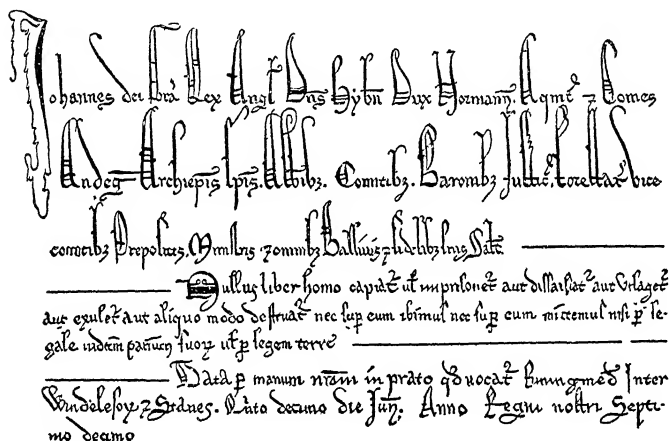 Johannes dei Gra Rex Angl Dns Hybn Dux Normann. Aqmt z Comes
Andeg Archiepis Epis. Abbibz. Comitibz. Baronibz Justic. Forestar vice
comitibz Prepositis. Ministris z omnibz Ballivis z fidelibz suis Salt
Nullus liber homo capiat ul imprisonet aut dissaisiat aut utlaget
aut exulet aut aliquo modo destruat nec sup eum ibimus nec sup eum mittemus nisi p le-
gale judicm parium suorz ul p legem terre
Data p manum nram in prato qd vocat Runingmed Inter
Windelesor z Stanes. Quinto decimo die Jun. Anno Regni nostri Septi-
mo decimo